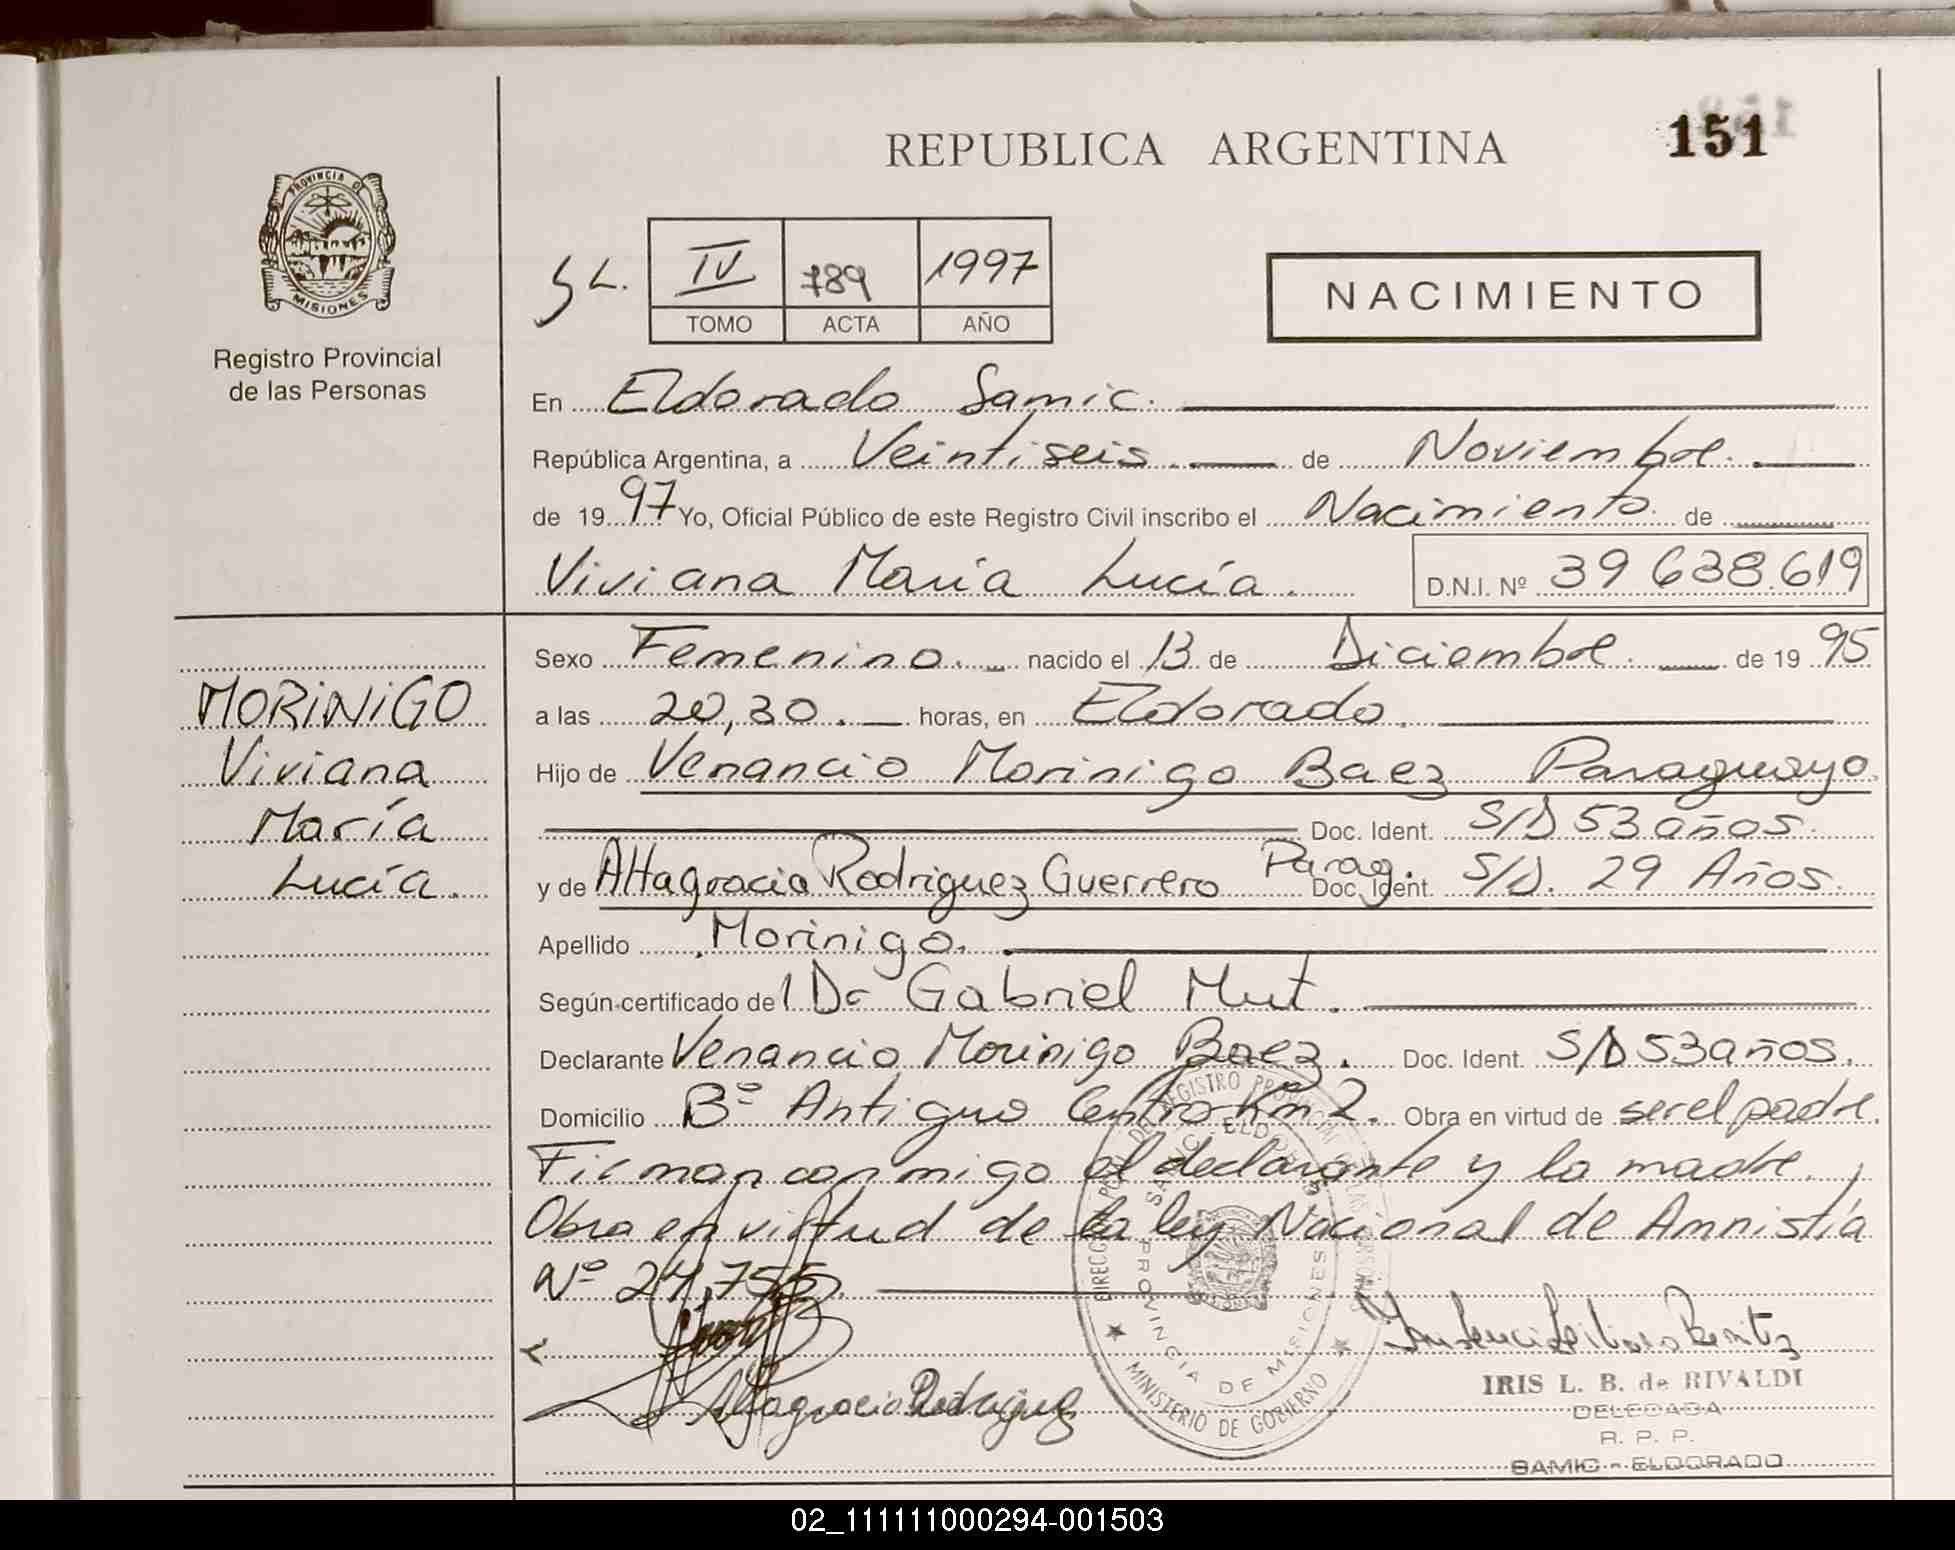 REPUBLICA ARGENTINA
151
PROVINCIA DE
MISIONES
Registro Provincial
de las Personas
IV 789 1997
TOMO ACTA AÑO
NACIMIENTO
En Eldorado Samic.
República Argentina, a Veintiseis de Noviembre.
de 1997 Yo, Oficial Público de este Registro Civil inscribo el Nacimiento de
Viviana María Lucía. D.N.I. Nº 39 638.619
MORINIGO
Viviana
María
Lucía.
Sexo Femenino. nacido el 13 de Diciembre. de 1995
a las 20,30. horas, en Eldorado.
Hijo de Venancio Morinigo Baez Paraguayo.
Doc. Ident. S/D 53 años.
y de Altagracia Rodriguez Guerrero Parag. Doc. Ident. S/D. 29 Años.
Apellido Morinigo.
Según certificado del Dr Gabriel Mut.
Declarante Venancio Morinigo Baez. Doc. Ident. S/D 53 años.
Domicilio Bº Antiguo Centro Km 2. Obra en virtud de ser el padre.
Firman conmigo el declarante y la madre.
Obra en virtud de la ley Nacional de Amnistía
Nº 24,755.
Altagracia Rodriguez
PROVINCIA DE MISIONES
MINISTERIO DE GOBIERNO
IRIS L. B. de RIVALDI
DELEGADA
R. P. P.
SAMIC - ELDORADO
02_111111000294-001503